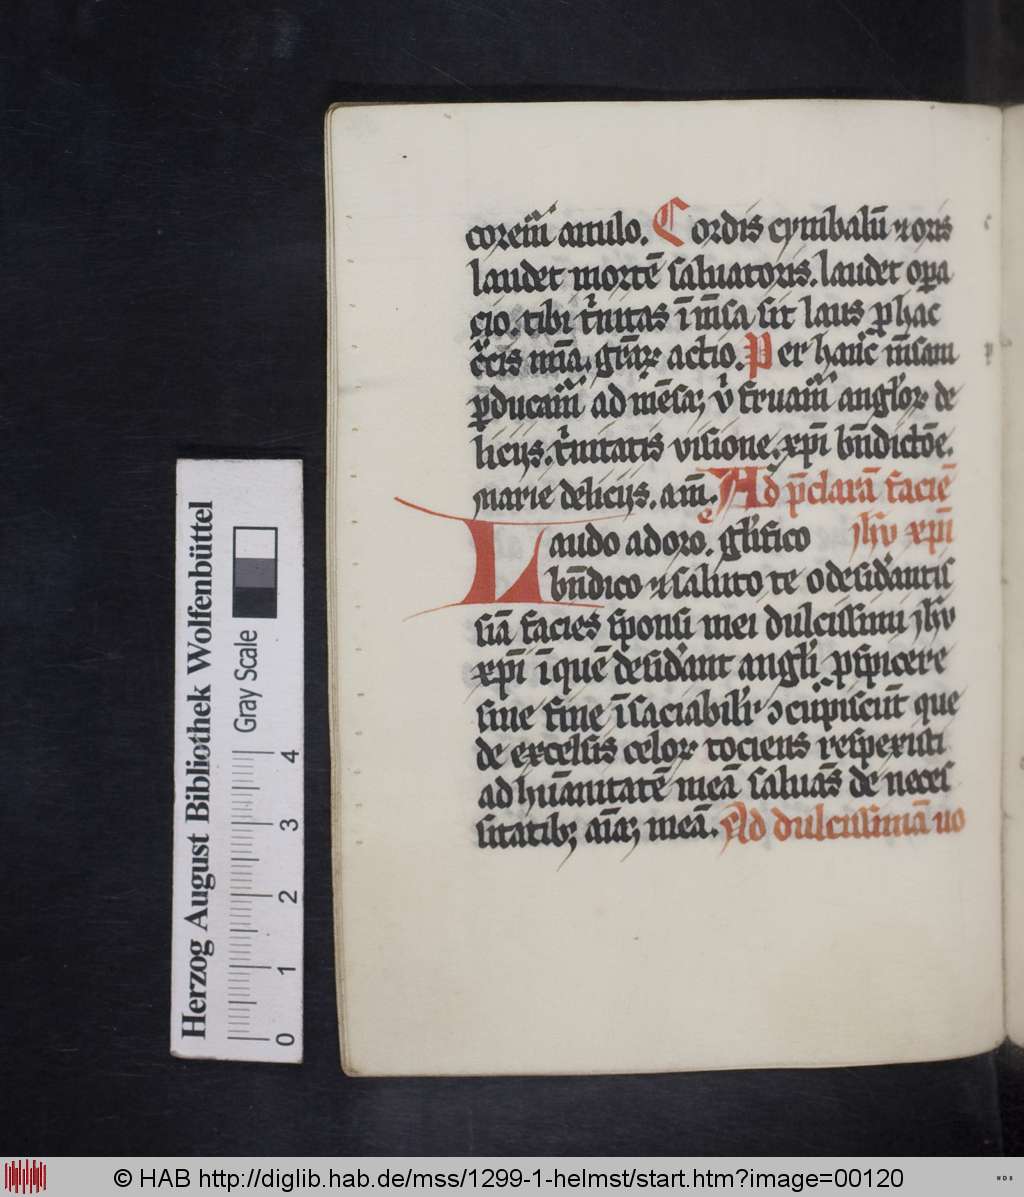 corem̄ amulo. Cordis cymbalū ⁊ oris
laudet mortē saluatoris. laudet oꝑa
cio. tibi t̍nitas īm̄sa sit laus ꝓ hac
actio. Per hanc m̄sam
ꝑducam̄ ad fruam̄ anglo̍ꝝ de
licijs. t̍nitatis visione. xp̄i bn̄dictōe.
marie delicijs. am̄. Ad p̄clarā faciē
Laudo adoro. gl̍ifico jhū xp̄i
bn̄dico ⁊ saluto te o desid̍antis
facies sponsi mei dulcissimi jhū
xp̄i ī quē desid̍ant angl̍i ꝓspicere
sine fine īsaciabilit̍ ɔcupiscūt que
de excelsis celoꝝ tociens respexisti
ad hūanitatē meā saluās de neces
sitatibꝫ aīaꝫ meā. Ad dulcissimā uo
Herzog August Bibliothek Wolfenbüttel
Gray Scale
0 1 2 3 4
© HAB http://diglib.hab.de/mss/1299-1-helmst/start.htm?image=00120